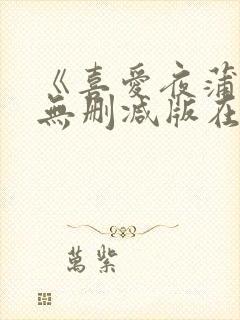 《喜愛夜蒲
無刪減版在
萬紫